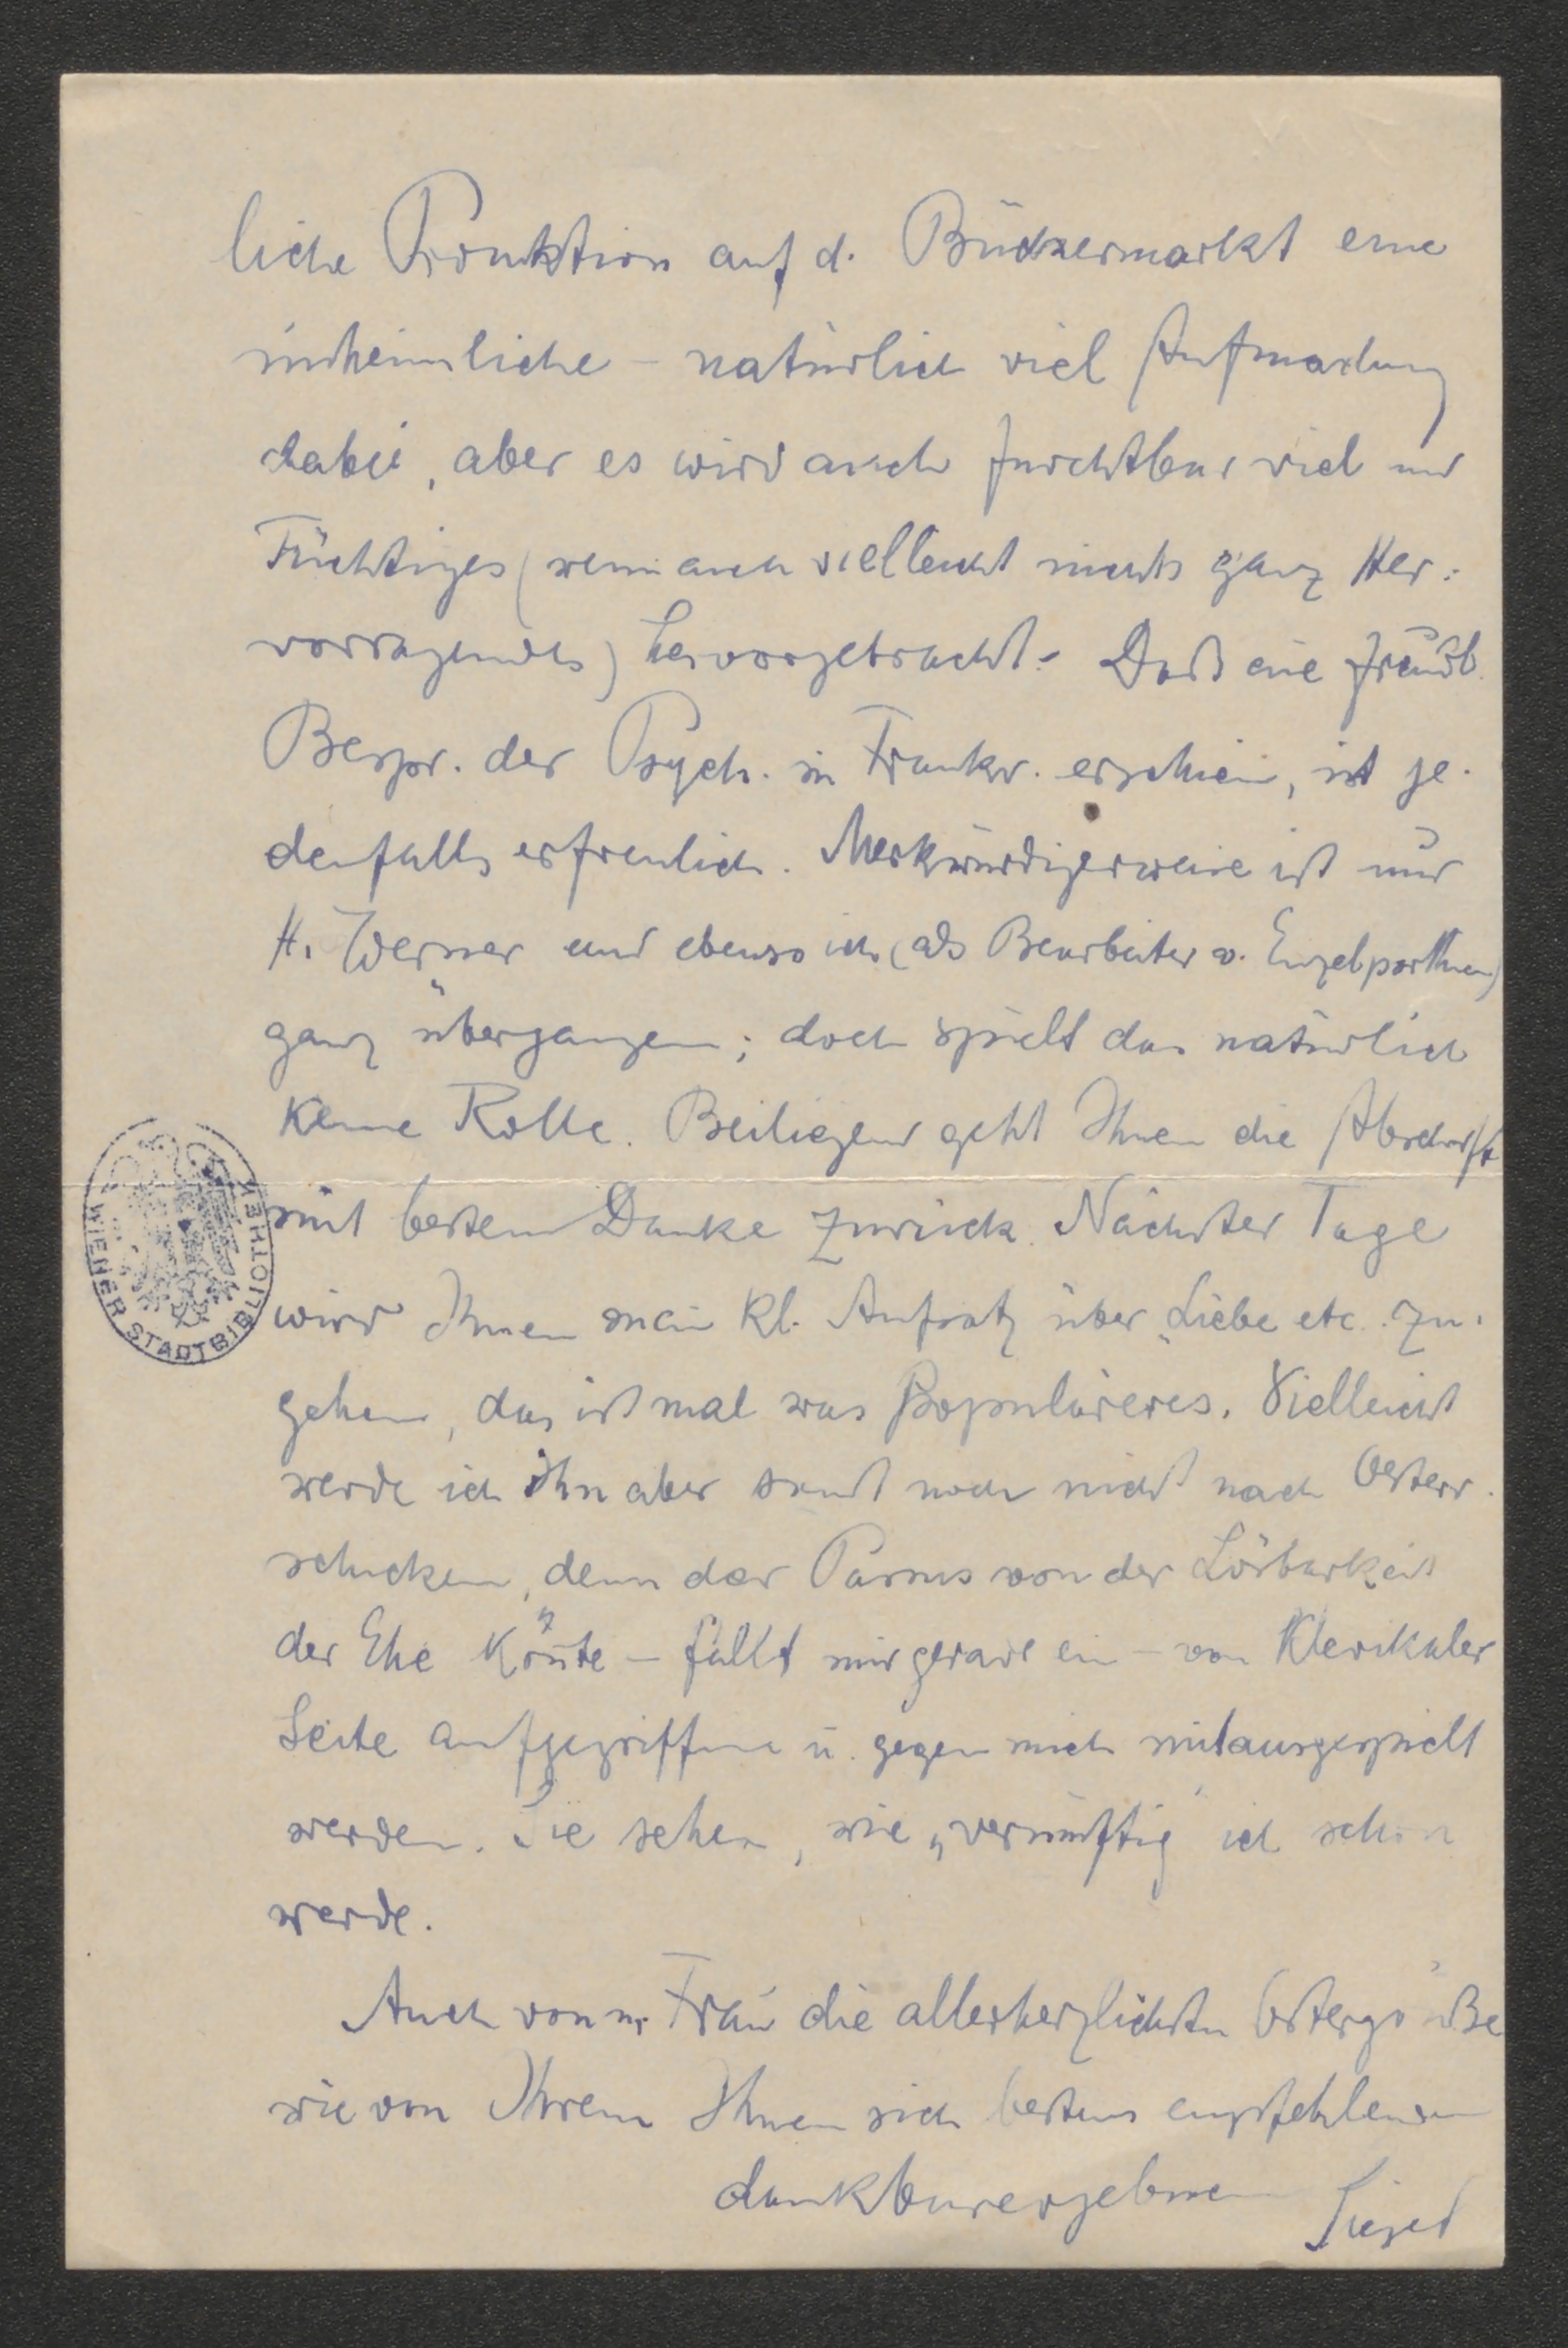 liche Produktion auf d. Büchermarkt eine
unheimliche – natürlich viel Aufmachung
dabei, aber es wird auch furchtbar viel und
Tüchtiges (wenn auch vielleicht nichts ganz Her-
vorragendes) hervorgebracht. Daß eine freundl.
Bespr. der Psych. in Frankr. erschien, ist je-
denfalls erfreulich. Merkwürdigerweise ist nur
H. Werner und ebenso ich (als Bearbeiter v. Einzelparthien)
ganz übergangen; doch spielt das natürlich
keine Rolle. Beiliegend geht Ihnen die Abschrift
mit bestem Danke zurück. Nächster Tage
wird Ihnen mein kl. Aufsatz über „Liebe etc. zu-
gehen, das ist mal was Populäreres. Vielleicht
werde ich ihn aber sonst noch nicht nach Österr.
schicken, denn der Passus von der Lösbarkeit
der Ehe könnte – fällt mir gerade ein – von klerikaler
Seite aufgegriffen u. gegen mich mitausgespielt
werden. Sie sehen, wie „vernünftig" ich schon
werde.
Auch von m. Frau die allerherzlichsten Ostergrüße
wie von Ihrem Ihnen sich bestens empfehlenden
dankbarergebenen
WIENER STADTBIBLIOTHEK